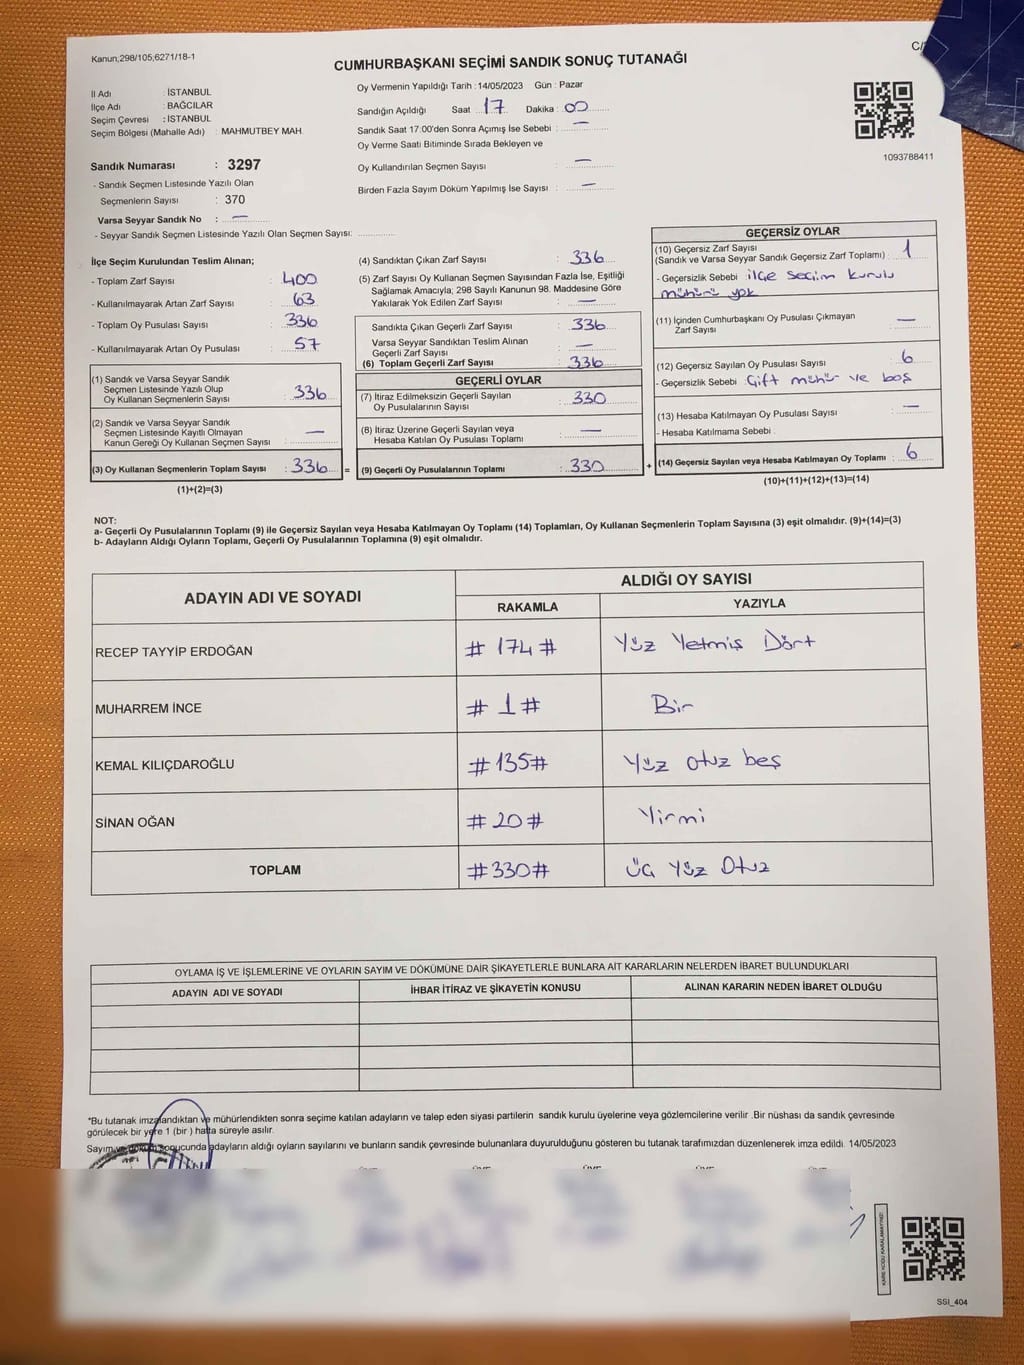 Kanun,298/105;6271/18-1
CUMHURBAŞKANI SEÇİMİ SANDIK SONUÇ TUTANAĞI
İl Adı : İSTANBUL
İlçe Adı : BAĞCILAR
Seçim Çevresi : İSTANBUL
Seçim Bölgesi (Mahalle Adı) : MAHMUTBEY MAH.
Sandık Numarası : 3297
- Sandık Seçmen Listesinde Yazılı Olan
Seçmenlerin Sayısı : 370
Varsa Seyyar Sandık No : —
- Seyyar Sandık Seçmen Listesinde Yazılı Olan Seçmen Sayısı:
Oy Vermenin Yapıldığı Tarih : 14/05/2023 Gün : Pazar
Sandığın Açıldığı Saat 17 Dakika : 00
Sandık Saat 17:00'den Sonra Açımış İse Sebebi : —
Oy Verme Saati Bitiminde Sırada Bekleyen ve
Oy Kullandırılan Seçmen Sayısı : —
Birden Fazla Sayım Döküm Yapılmış İse Sayısı : —
1093788411
İlçe Seçim Kurulundan Teslim Alınan;
- Toplam Zarf Sayısı : 400
- Kullanılmayarak Artan Zarf Sayısı : 63
- Toplam Oy Pusulası Sayısı : 336
- Kullanılmayarak Artan Oy Pusulası : 57
(1) Sandık ve Varsa Seyyar Sandık
Seçmen Listesinde Yazılı Olup
Oy Kullanan Seçmenlerin Sayısı : 336
(2) Sandık ve Varsa Seyyar Sandık
Seçmen Listesinde Kayıtlı Olmayan
Kanun Gereği Oy Kullanan Seçmen Sayısı : —
(3) Oy Kullanan Seçmenlerin Toplam Sayısı : 336 =
(1)+(2)=(3)
(4) Sandıktan Çıkan Zarf Sayısı : 336
(5) Zarf Sayısı Oy Kullanan Seçmen Sayısından Fazla İse, Eşitliği
Sağlamak Amacıyla; 298 Sayılı Kanunun 98. Maddesine Göre
Yakılarak Yok Edilen Zarf Sayısı : —
Sandıkta Çıkan Geçerli Zarf Sayısı : 336
Varsa Seyyar Sandıktan Teslim Alınan
Geçerli Zarf Sayısı : —
(6) Toplam Geçerli Zarf Sayısı : 336
GEÇERLİ OYLAR
(7) İtiraz Edilmeksizin Geçerli Sayılan
Oy Pusulalarının Sayısı : 330
(8) İtiraz Üzerine Geçerli Sayılan veya
Hesaba Katılan Oy Pusulası Toplamı : —
(9) Geçerli Oy Pusulalarının Toplamı : 330 +
GEÇERSİZ OYLAR
(10) Geçersiz Zarf Sayısı
(Sandık ve Varsa Seyyar Sandık Geçersiz Zarf Toplamı) : 1
- Geçersizlik Sebebi : ilçe seçim kurulu
mühürü yok
(11) İçinden Cumhurbaşkanı Oy Pusulası Çıkmayan
Zarf Sayısı : —
(12) Geçersiz Sayılan Oy Pusulası Sayısı : 6
- Geçersizlik Sebebi : Çift mühür ve boş
(13) Hesaba Katılmayan Oy Pusulası Sayısı : —
- Hesaba Katılmama Sebebi :
(14) Geçersiz Sayılan veya Hesaba Katılmayan Oy Toplamı : 6
(10)+(11)+(12)+(13)=(14)
NOT:
a- Geçerli Oy Pusulalarının Toplamı (9) ile Geçersiz Sayılan veya Hesaba Katılmayan Oy Toplamı (14) Toplamları, Oy Kullanan Seçmenlerin Toplam Sayısına (3) eşit olmalıdır. (9)+(14)=(3)
b- Adayların Aldığı Oyların Toplamı, Geçerli Oy Pusulalarının Toplamına (9) eşit olmalıdır.
ADAYIN ADI VE SOYADI
ALDIĞI OY SAYISI
RAKAMLA YAZIYLA
RECEP TAYYİP ERDOĞAN # 174 # Yüz Yetmiş Dört
MUHARREM İNCE # 1 # Bir
KEMAL KILIÇDAROĞLU # 135 # Yüz otuz beş
SİNAN OĞAN # 20 # Yirmi
TOPLAM # 330 # üç Yüz Otuz
OYLAMA İŞ VE İŞLEMLERİNE VE OYLARIN SAYIM VE DÖKÜMÜNE DAİR ŞİKAYETLERLE BUNLARA AİT KARARLARIN NELERDEN İBARET BULUNDUKLARI
ADAYIN ADI VE SOYADI İHBAR İTİRAZ VE ŞİKAYETİN KONUSU ALINAN KARARIN NEDEN İBARET OLDUĞU
*Bu tutanak imzalandıktan ve mühürlendikten sonra seçime katılan adayların ve talep eden siyasi partilerin sandık kurulu üyelerine veya gözlemcilerine verilir .Bir nüshası da sandık çevresinde
görülecek bir yere 1 (bir ) hafta süreyle asılır.
Sayım ve döküm sonucunda adayların aldığı oyların sayılarını ve bunların sandık çevresinde bulunanlara duyurulduğunu gösteren bu tutanak tarafımızdan düzenlenerek imza edildi. 14/05/2023
SSI_404